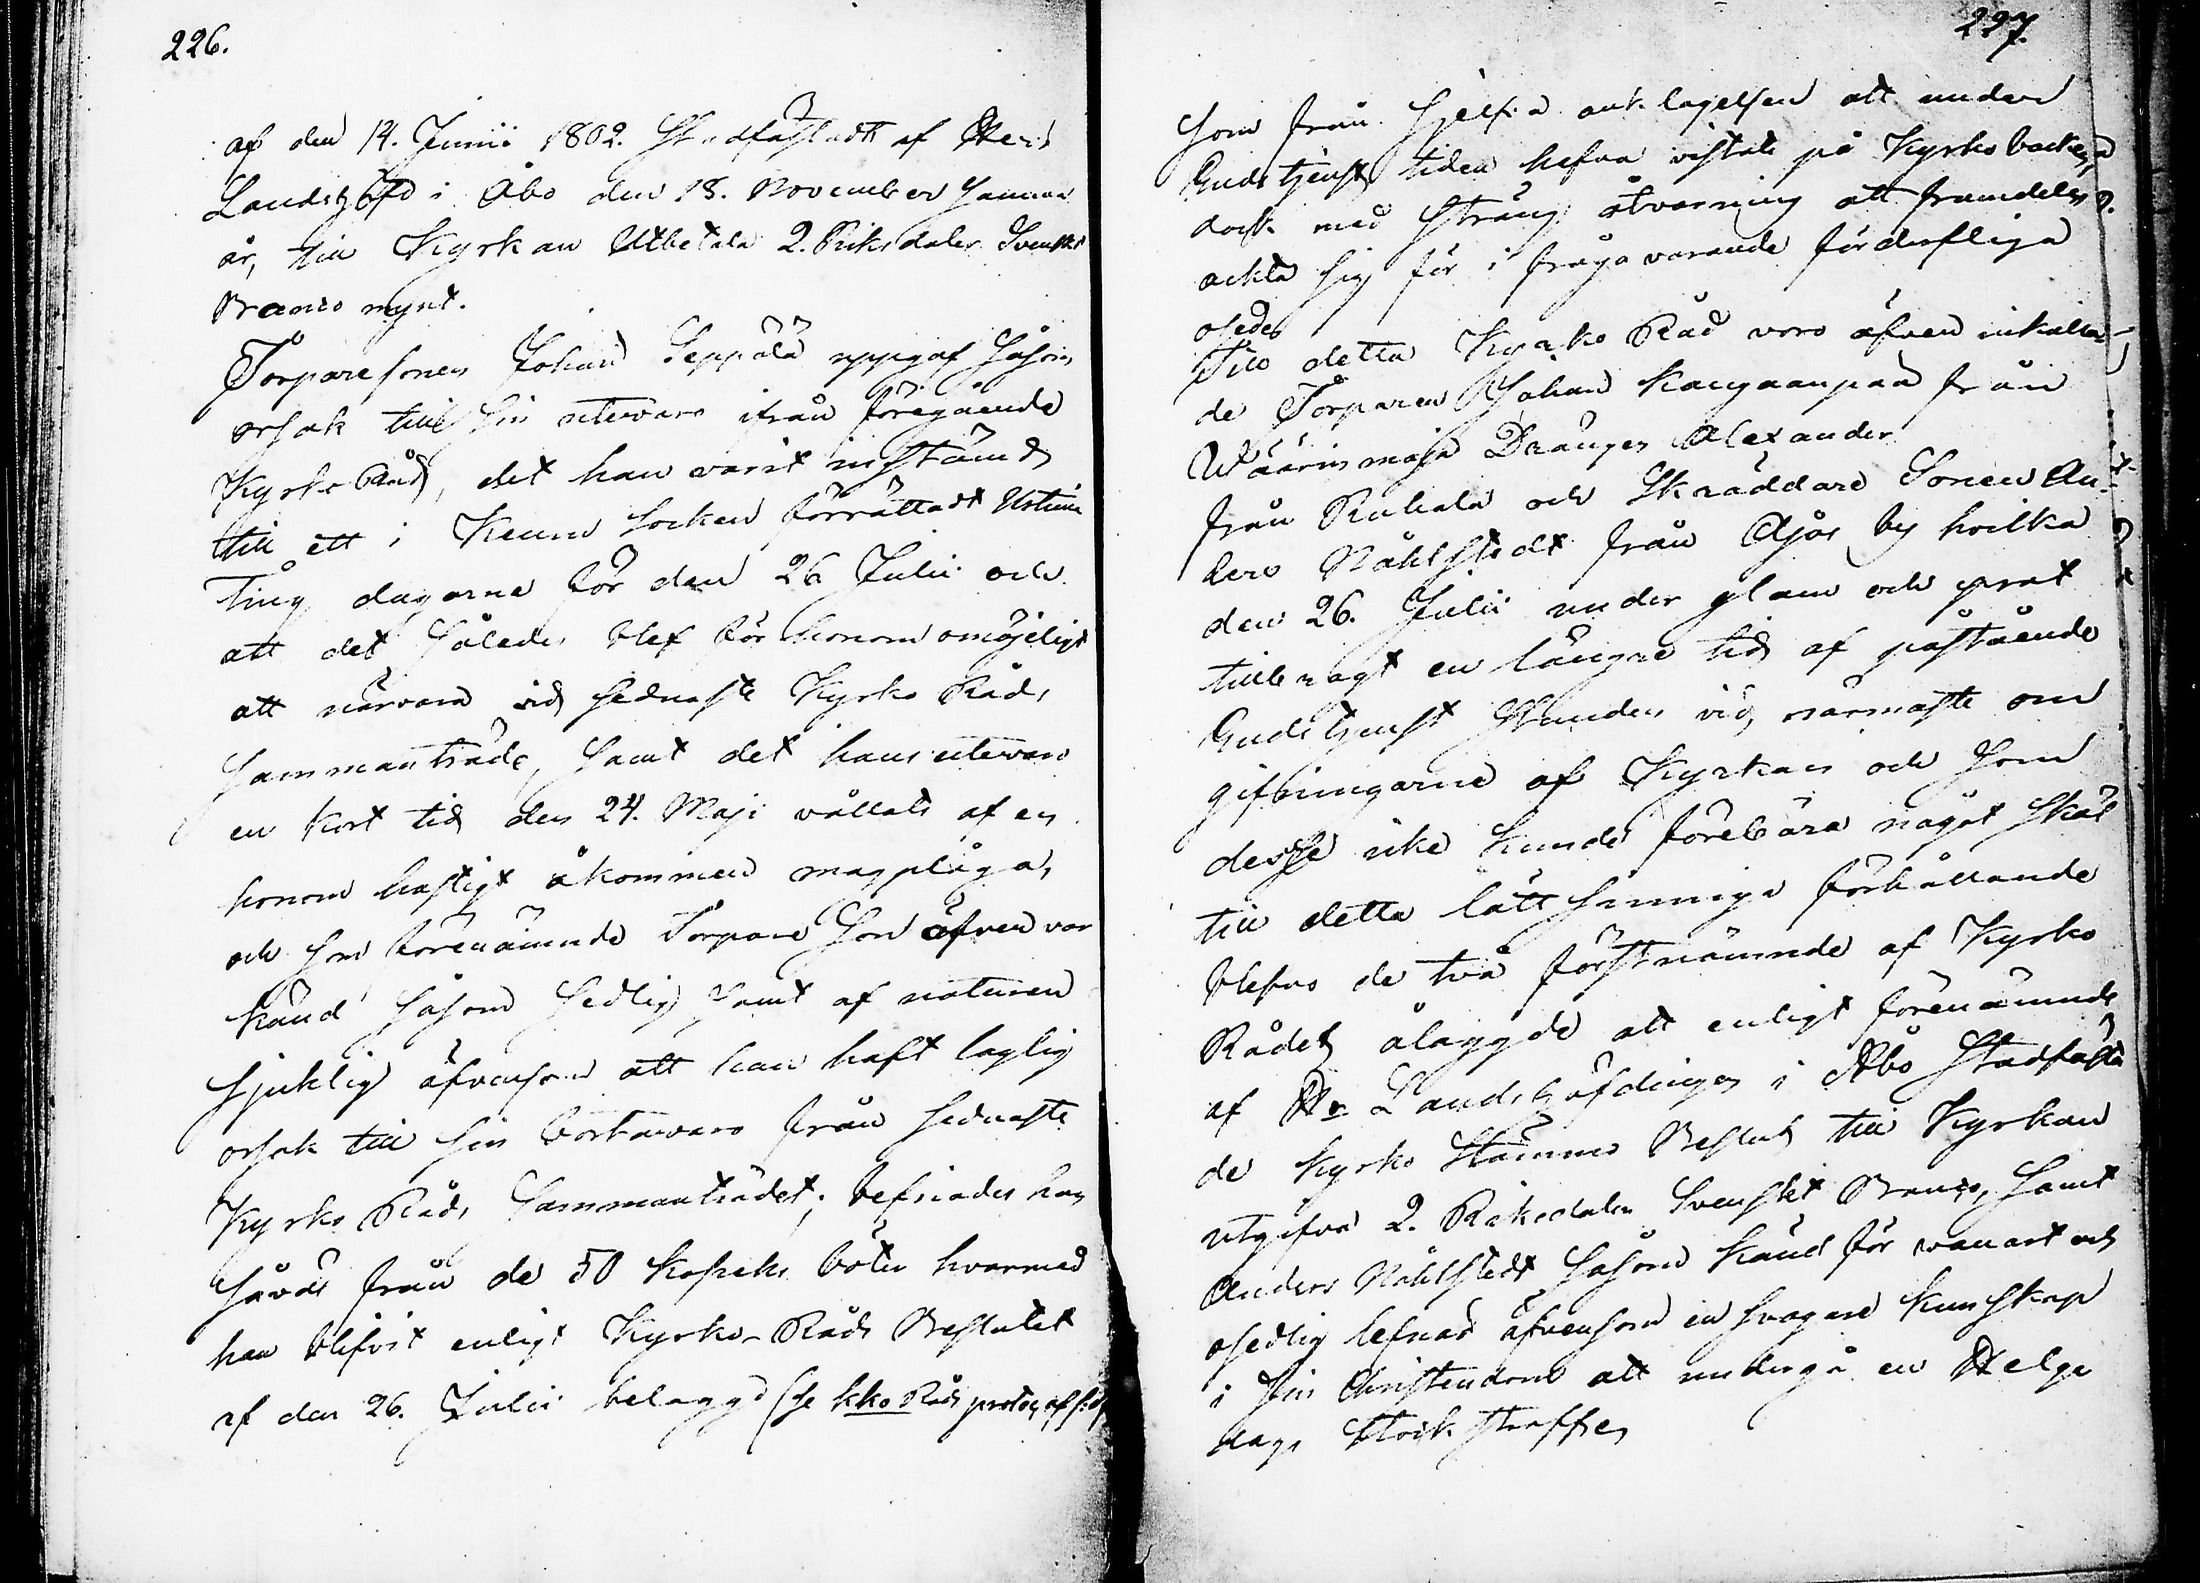 226.
af den 14. Junii 1802. Stadfästadt af Herr
Landshöfd i Åbo den 18. November samma
år, till Kyrkan Utbetala 2. Riksdaler Svenskt
Banco mynt.
Torparesonen Johan Seppälä uppgaf såsom
orsak till sin utevaro ifrån föregående
KyrkoRåd, det han varit instämd
till ett i Keuru Socken förrättadt Urtima
Ting dagarne för den 26 Julii och
att det således blef för honom omöjeligt
att närvara vid sednaste Kyrko Råds
Sammanträde, samt det hans utevaro
en kort tid den 24. Maji vållats af en
honom hastigt åkommen magplåga,
och som förenämnde Torpare Son äfven var
känd såsom sedlig samt af naturen
sjuklig äfvensom att han haft laglig
orsak till sin bortavaro från sednaste
Kyrko Råds Sammanträdet; befriades han
såväl från de 50 Kopeks böter hvarmed
han blifvit enligt Kyrko-Råds Beslutet
af den 26. Julii belagd (se kko Råds protoc af s:d
227.
som från sjelfva anklagelsen att under
Gudstjensts tiden hafva vistats på Kyrkobacken,
dock med sträng åtvarning att framdeles
ackta sig för i frågavarande förderfliga
oseder
Till detta Kyrko Råd voro äfven inkalla-
de Torparen Johan Kangaanpää från
Wäärinmaja Drängen Alexander
från Ruhala och Skräddare Sonen An-
ders Nåhlstedt från by hvilka
den 26. Julii under glam och prat
tillbragt en längre tid af påstående
Gudstjenst Stunden vid, närmaste om
gifningarne af Kyrkan och som
desse icke kunde förebära något skäl
till detta lättsinniga förhållande
blefvo de två förstnämnde af Kyrko
Rådet ålaggde att enligt förenämnde
af Hr Landshöfdingen i Åbo Stadfäste
de Kyrko Stämmo Beslut till Kyrkan
utgifva 2. Riksdaler Svenskt Banco, samt
Anders Nåhlstedt såsom känd för wanart och
osedlig lefnad äfvensom en svagare kunskap
i sin Christendom att undergå en Helge
dags Stock straffen